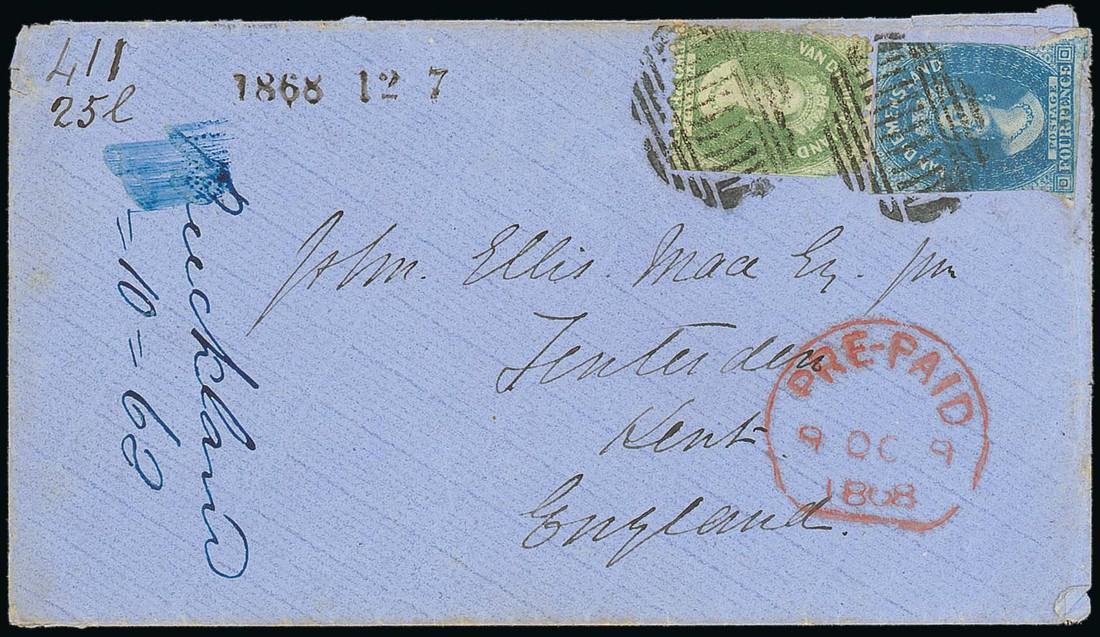 411
25l
1868 12 7
VAN D
LAND
VAN DIEMENS LAND
POSTAGE
FOUR PENCE
John Ellis Mace Esq. Jnr
Tenterden
Kent
England.
PRE-PAID
9 OC 9
1868
= 10 = 62